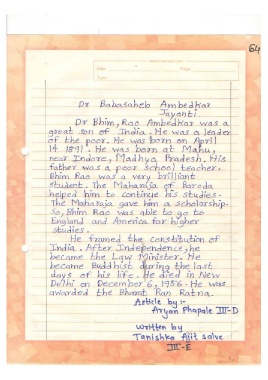 64
Dr Babasaheb Ambedkar
Jayanti.
Dr Bhim, Rao Ambedkar was a
great son of India. He was a leader
of the poor. He was born on April
14 1891. He was born at Mahu,
near Indore, Madhya Pradesh. His
father was a poor school teacher.
Bhim Rao was a very brilliant
student. The Maharaja of Baroda
helped him to continue his studies.
The Maharaja gave him a scholarship.
so, Bhim Rao was able to go to
England and America for higher
studies.
He framed the constitution of
India. After Independence, he
became the Law Minister. He
became Buddhist during the last
days of his life. He died in New
Delhi on December 6, 1956. He was
awarded the Bharat Ran Ratna.
Article by :-
Aryan Phapale III-D
written by
Tanishka Ajit salve
III-E